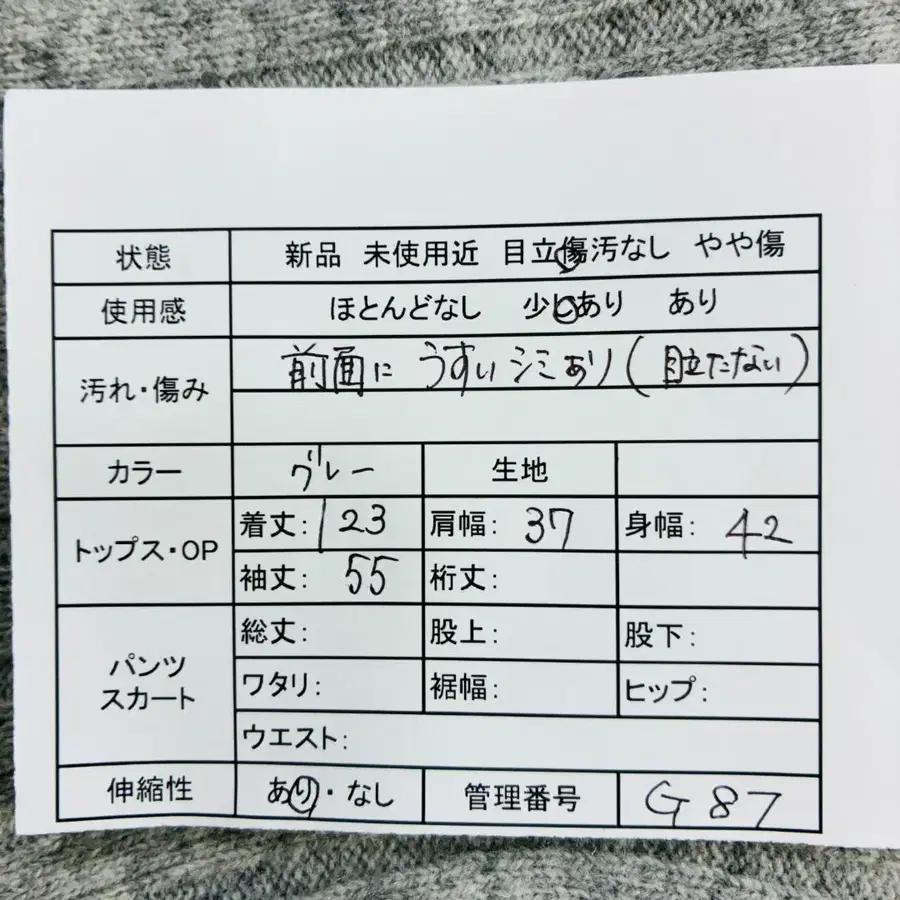 状態 新品 未使用近 目立傷汚なし やや傷
使用感 ほとんどなし 少しあり あり
汚れ・傷み 前面に うすいシミあり(目立たない)
カラー グレー 生地
トップス・OP 着丈: 123 肩幅: 37 身幅: 42
袖丈: 55 裄丈:
パンツ スカート 総丈: 股上: 股下:
ワタリ: 裾幅: ヒップ:
ウエスト:
伸縮性 あり・なし 管理番号 G87